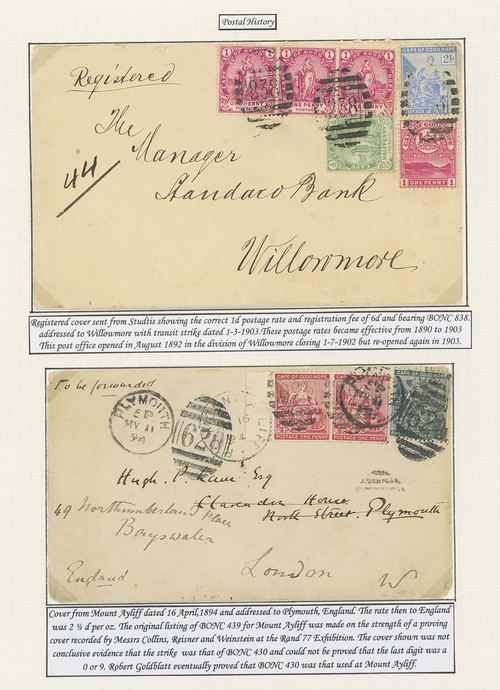 Postal History
CAPE OF GOOD HOPE
2½
ONE PENNY
1 ONE PENNY 1
Registered
The
Manager
44
Standard Bank
Willowmore
Registered cover sent from Studtis showing the correct 1d postage rate and registration fee of 6d and bearing BONC 838.
addressed to Willowmore with transit strike dated 1-3-1903.These postage rates became effective from 1890 to 1903
This post office opened in August 1892 in the division of Willowmore closing 1-7-1902 but re-opened again in 1903.
To be forwarded
PLYMOUTH
MY 11
94
628
POSTAGE ONE PENNY POSTAGE ONE PENNY
Hugh P. Esq
Clarendon House
49 Northumberland Place North Street. Plymouth
Bayswater
London
England W
Cover from Mount Ayliff dated 16 April,1894 and addressed to Plymouth, England. The rate then to England
was 2 ½ d per oz. The original listing of BONC 439 for Mount Ayliff was made on the strength of a proving
cover recorded by Messrs Collins, Reisner and Weinstein at the Rand 77 Exhibition. The cover shown was not
conclusive evidence that the strike was that of BONC 430 and could not be proved that the last digit was a
0 or 9. Robert Goldblatt eventually proved that BONC 430 was that used at Mount Ayliff.